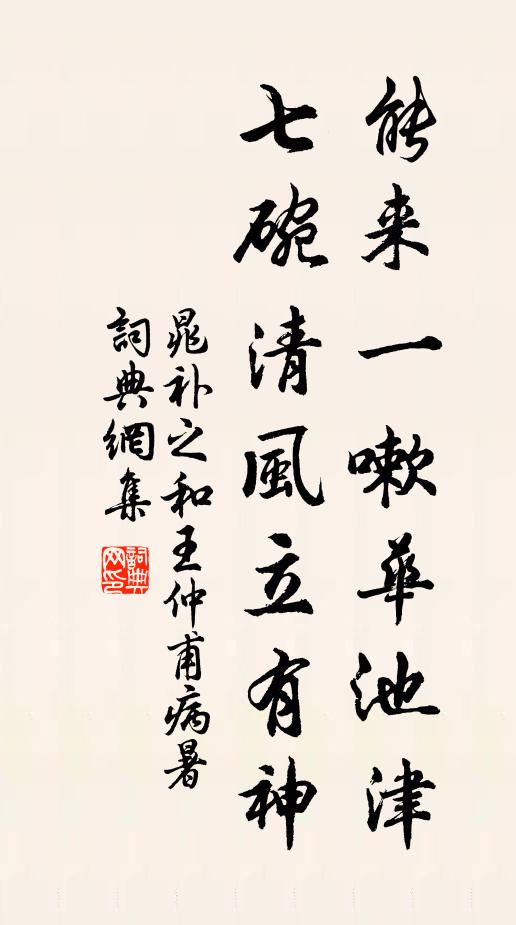 能来一嗽華池津
七碗清風立有神
晁补之和王仲甫病暑
詞典網集
詞典网印